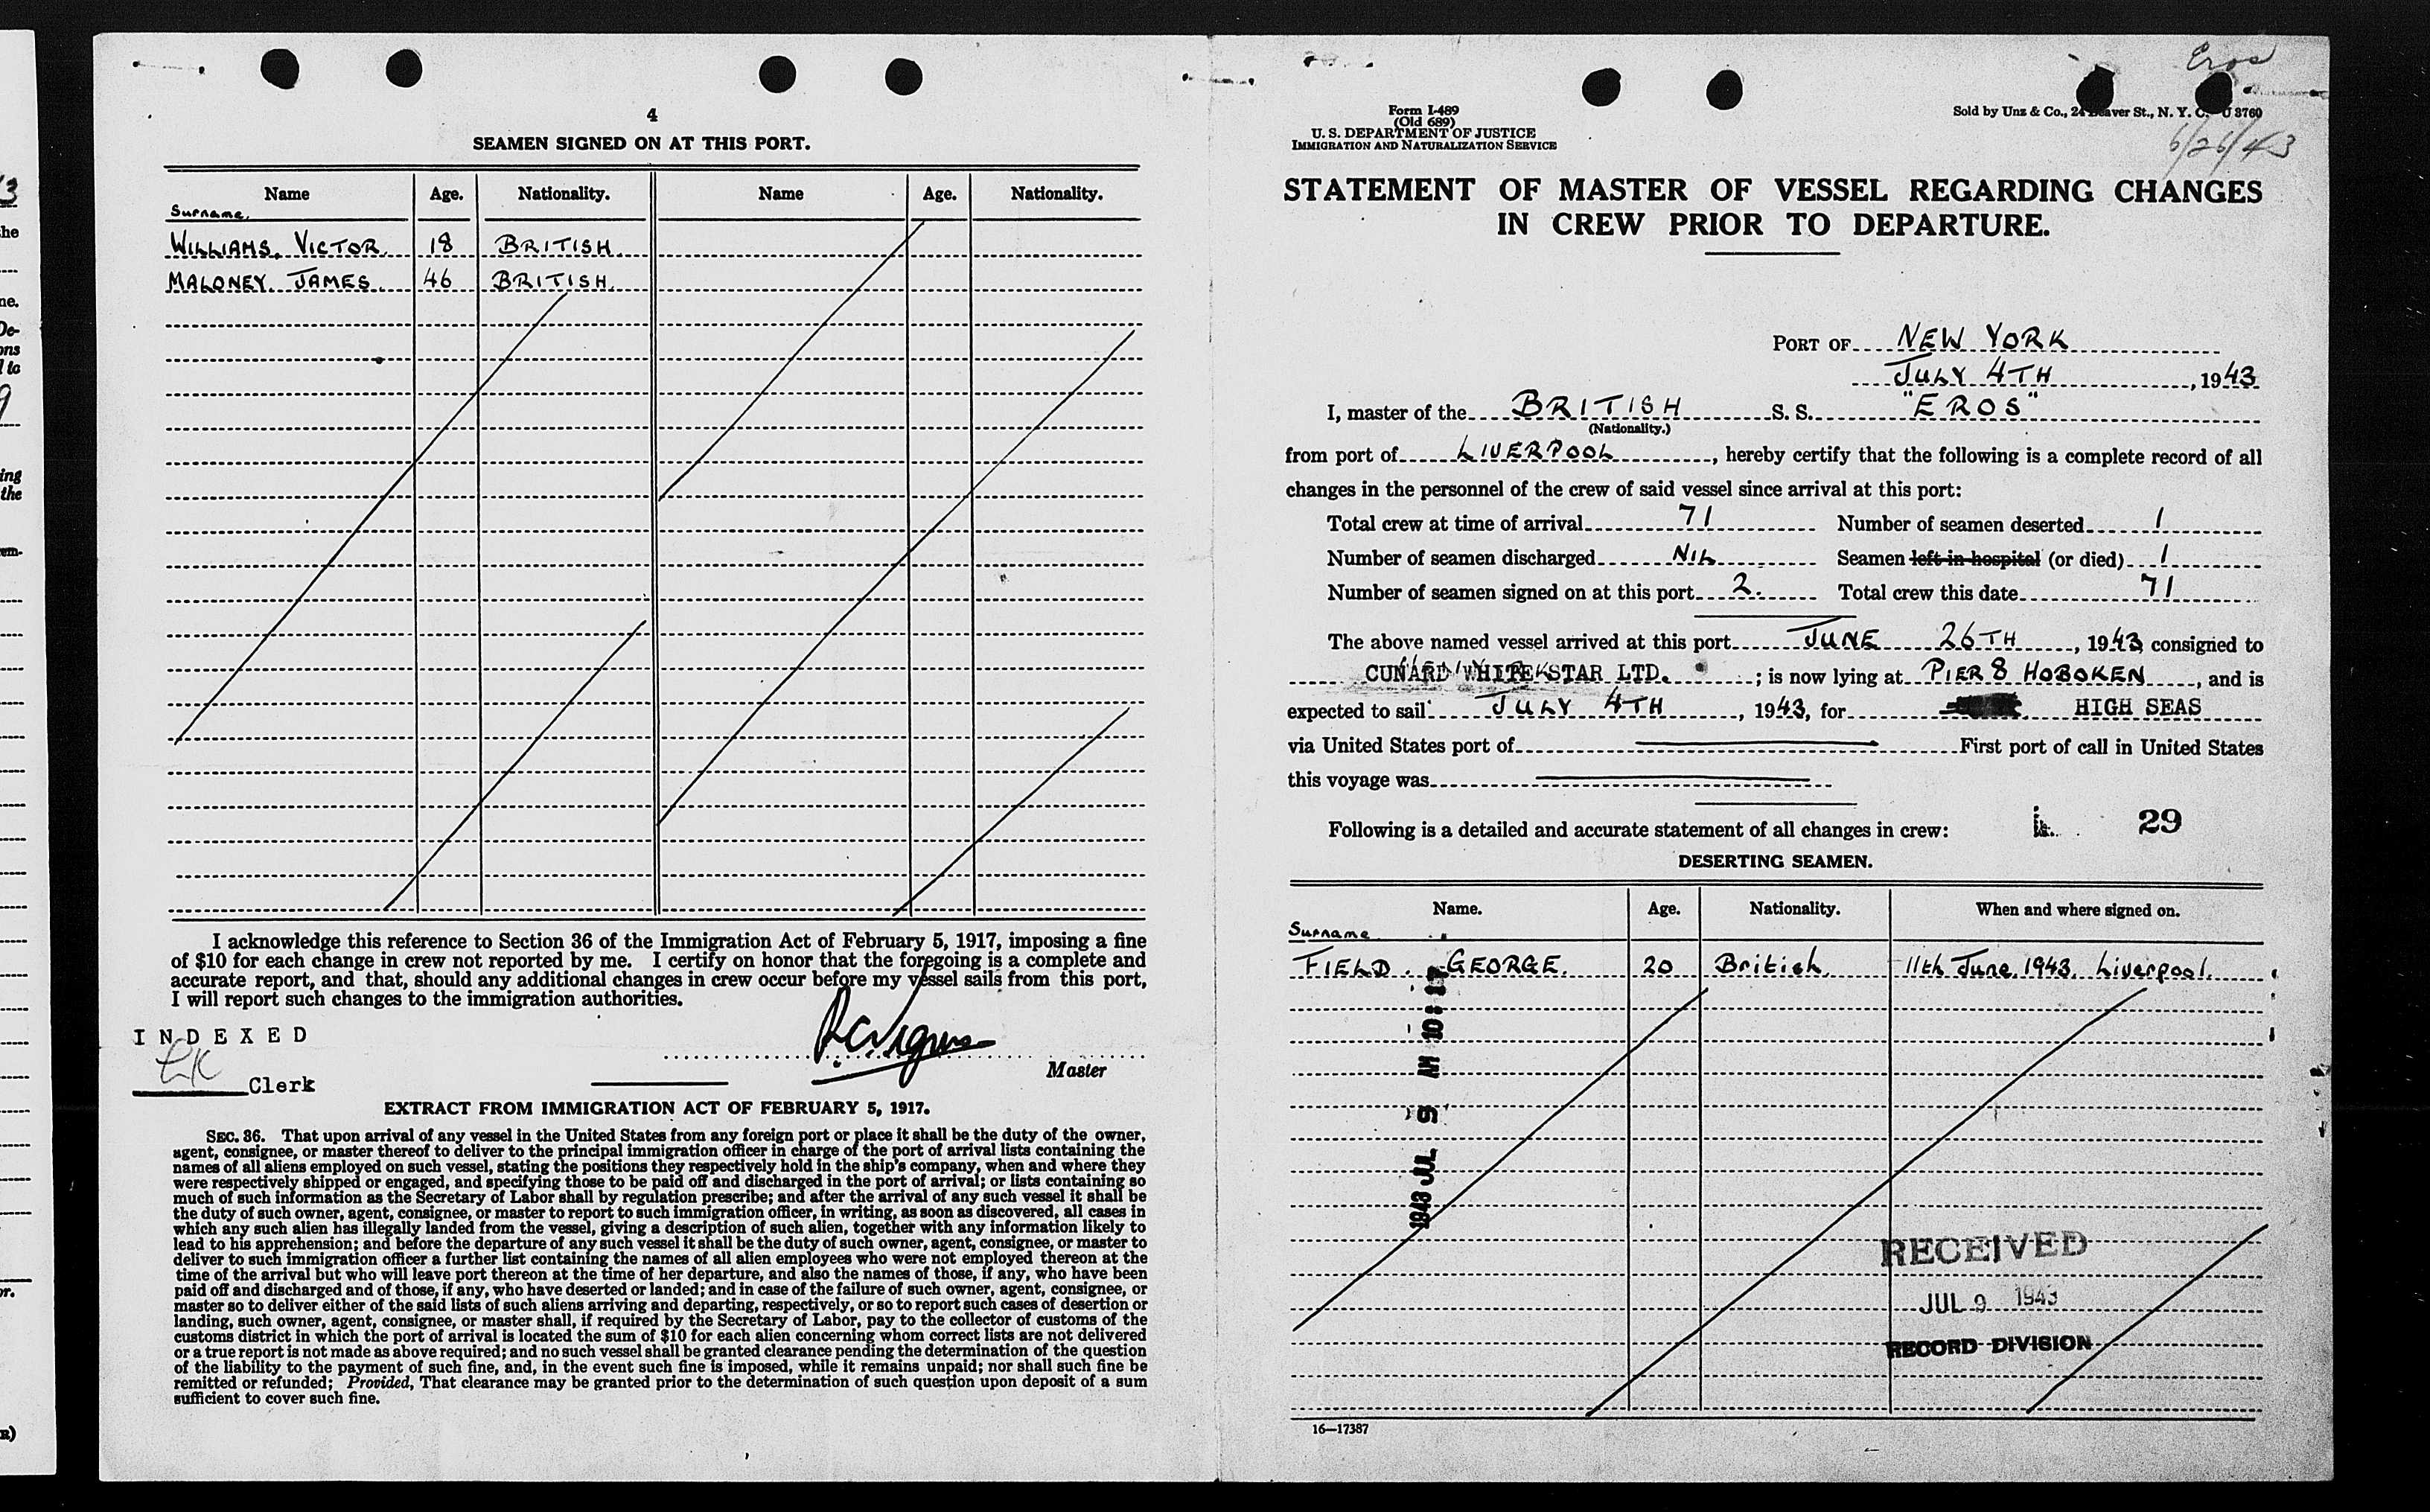 3
he
ne.
De-
ons
l to
9
ing
the
em-
or.
R)
4
SEAMEN SIGNED ON AT THIS PORT.
Name Age. Nationality. Name Age. Nationality.
Surname.
WILLIAMS. VICTOR. 18 BRITISH.
MALONEY. JAMES. 46 BRITISH.
I acknowledge this reference to Section 36 of the Immigration Act of February 5, 1917, imposing a fine
of $10 for each change in crew not reported by me. I certify on honor that the foregoing is a complete and
accurate report, and that, should any additional changes in crew occur before my vessel sails from this port,
I will report such changes to the immigration authorities.
INDEXED
Master
Clerk
EXTRACT FROM IMMIGRATION ACT OF FEBRUARY 5, 1917.
SEC. 36. That upon arrival of any vessel in the United States from any foreign port or place it shall be the duty of the owner,
agent, consignee, or master thereof to deliver to the principal immigration officer in charge of the port of arrival lists containing the
names of all aliens employed on such vessel, stating the positions they respectively hold in the ship's company, when and where they
were respectively shipped or engaged, and specifying those to be paid off and discharged in the port of arrival; or lists containing so
much of such information as the Secretary of Labor shall by regulation prescribe; and after the arrival of any such vessel it shall be
the duty of such owner, agent, consignee, or master to report to such immigration officer, in writing, as soon as discovered, all cases in
which any such alien has illegally landed from the vessel, giving a description of such alien, together with any information likely to
lead to his apprehension; and before the departure of any such vessel it shall be the duty of such owner, agent, consignee, or master to
deliver to such immigration officer a further list containing the names of all alien employees who were not employed thereon at the
time of the arrival but who will leave port thereon at the time of her departure, and also the names of those, if any, who have been
paid off and discharged and of those, if any, who have deserted or landed; and in case of the failure of such owner, agent, consignee, or
master so to deliver either of the said lists of such aliens arriving and departing, respectively, or so to report such cases of desertion or
landing, such owner, agent, consignee, or master shall, if required by the Secretary of Labor, pay to the collector of customs of the
customs district in which the port of arrival is located the sum of $10 for each alien concerning whom correct lists are not delivered
or a true report is not made as above required; and no such vessel shall be granted clearance pending the determination of the question
of the liability to the payment of such fine, and, in the event such fine is imposed, while it remains unpaid; nor shall such fine be
remitted or refunded; Provided, That clearance may be granted prior to the determination of such question upon deposit of a sum
sufficient to cover such fine.
Eros
Form I-489
(Old 689)
U. S. DEPARTMENT OF JUSTICE
IMMIGRATION AND NATURALIZATION SERVICE
Sold by Unz & Co., 24 Beaver St., N. Y. C. 3760
6/26/43
STATEMENT OF MASTER OF VESSEL REGARDING CHANGES
IN CREW PRIOR TO DEPARTURE.
PORT OF NEW YORK
JULY 4TH, 1943
I, master of the BRITISH S. S. "EROS"
(Nationality.)
from port of LIVERPOOL, hereby certify that the following is a complete record of all
changes in the personnel of the crew of said vessel since arrival at this port:
Total crew at time of arrival 71 Number of seamen deserted 1
Number of seamen discharged NIL Seamen left in hospital (or died) 1
Number of seamen signed on at this port 2. Total crew this date 71
The above named vessel arrived at this port JUNE 26TH, 1943 consigned to
CUNARD WHITE STAR LTD. ; is now lying at PIER 8 HOBOKEN, and is
expected to sail JULY 4TH, 1943, for HIGH SEAS
via United States port of First port of call in United States
this voyage was
Following is a detailed and accurate statement of all changes in crew: 29
DESERTING SEAMEN.
Name. Age. Nationality. When and where signed on.
Surname
FIELD. GEORGE. 20 British. 11th June, 1943. Liverpool.
1943 JUL 9 AM 10
RECEIVED
JUL 9 1943
RECORD DIVISION
16—17387